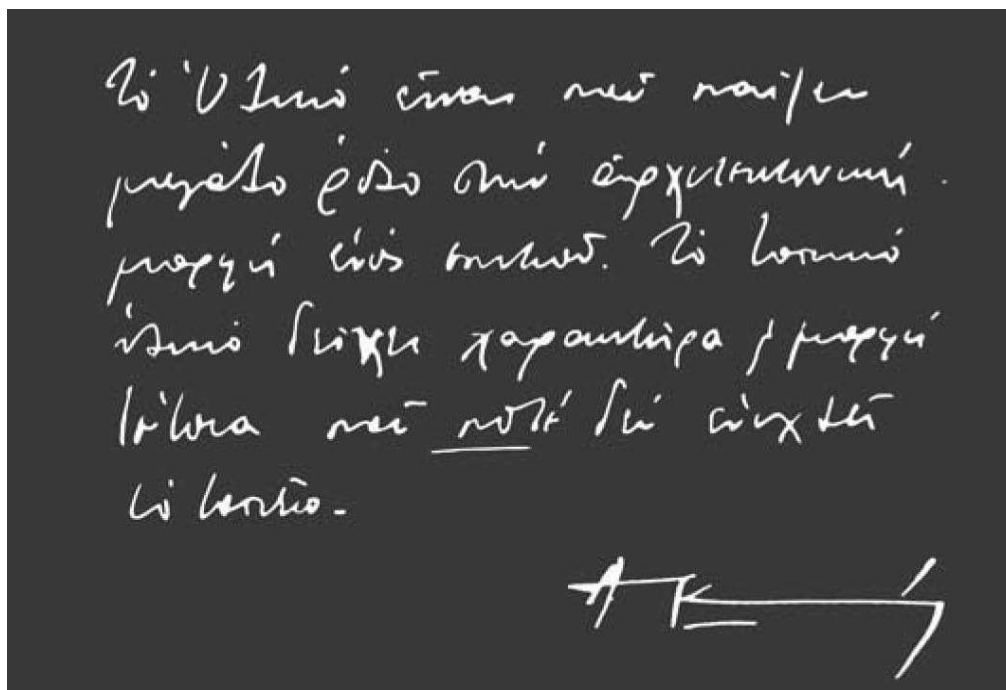 Τὸ Ὑλικό εἶναι ποὺ παίζει
μεγάλο ρόλο στὴν ἀρχιτεκτονική
μορφή ἑνὸς σπιτιοῦ. Τὸ τοπικό
ὑλικό δείχνει χαρακτήρα, μορφή
τέτοια ποὺ ποτὲ δὲν ἐνοχλεῖ
τὸ τοπίο.-